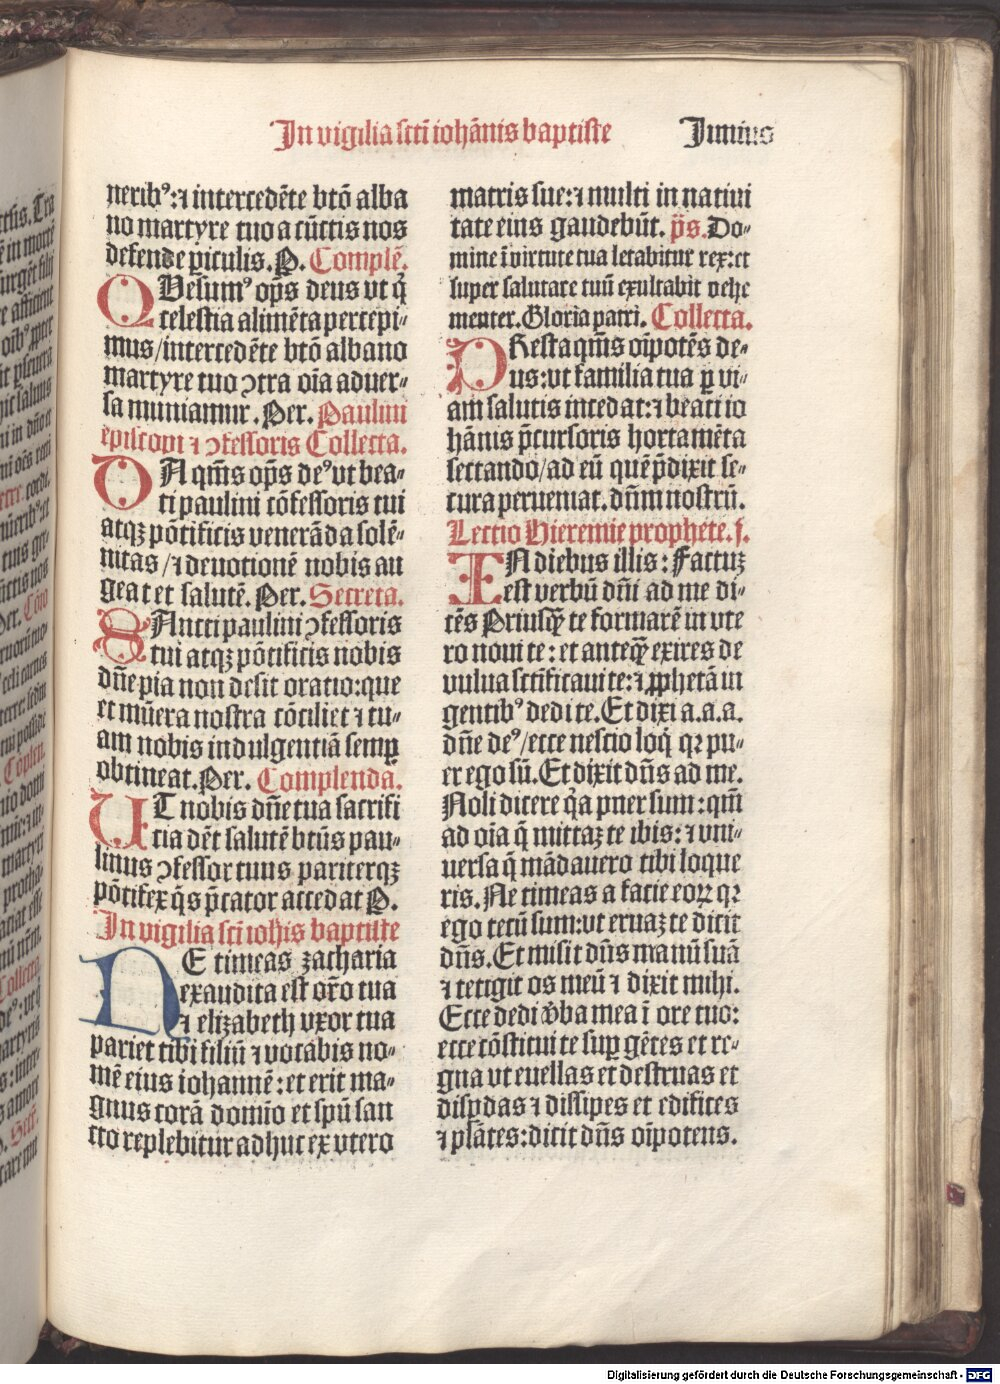 In vigilia scti iohānis baptiste Junius
neribꝰ: ⁊ intercedēte btō alba
no martyre tuo a cūctis nos
defende ꝑiculis. P. Complē.
QVesumꝰ oꝑs deus vt q̄
celestia alimēta percepi⸗
mus/intercedēte btō albano
martyre tuo ↄtra oīa aduer⸗
sa muniamur. Per. Paulini
episcopi ⁊ ↄfessoris Collecta.
DA qm̄s oꝑs deꝰ vt bea⸗
ti paulini cōfessoris tui
atqꝫ pōtificis venerāda solē⸗
nitas/⁊ deuotionē nobis au
geat et salutē. Per. Secreta.
SAncti paulini ↄfessoris
tui atqꝫ pōtificis nobis
dn̄e pia non desit oratio: que
et mūera nostra cōciliet ⁊ tu⸗
am nobis indulgentiā semꝑ
obtineat. Per. Complenda.
UT nobis dn̄e tua sacrifi
cia dēt salutē btūs pau⸗
linus ↄfessor tuus pariterqꝫ
pōtifex q̄s p̄cator accedat P.
In vigilia scti iohis baptiste
NE timeas zacharia
exaudita est or̄o tua
⁊ elizabeth vxor tua
pariet tibi filiū ⁊ vocabis no⸗
mē eius iohannē: et erit ma⸗
gnus corā domīo et spū san
cto replebitur adhuc ex vtero
matris sue: ⁊ multi in natiui
tate eius gaudebūt. p̄s. Do⸗
mine ī virtute tua letabitur rex: et
super salutare tuū exultabit vehe
menter. Gloria patri. Collecta.
PResta qm̄s oīpotēs de⸗
us: vt familia tua ꝑ vi⸗
am salutis incedat: ⁊ beati io
hānis p̄cursoris hortamēta
sectando/ad eū quē p̄dixit se⸗
cura perueniat. dn̄m nostrū.
Lectio Hieremie prophete. j.
IN diebus illis: Factuꝫ
est verbū dn̄i ad me di⸗
cēs Priusꝙ̄ te formarē in vte
ro noui te: et anteꝙ̄ exires de
vulua sctīficaui te: ⁊ ꝓphetā in
gentibꝰ dedi te. Et dixi a.a.a.
dn̄e deꝰ/ecce nescio loq̄ qꝛ pu⸗
er ego sū. Et dixit dn̄s ad me.
Noli dicere q̄a puer sum: qm̄
ad oīa q̄ mittaꝫ te ibis: ⁊ vni⸗
uersa q̄ mādauero tibi loque
ris. Ne timeas a facie eoꝝ qꝛ
ego tecū sum: vt eruaꝫ te dicit
dn̄s. Et misit dn̄s manū suā
⁊ tetigit os meū ⁊ dixit mihi.
Ecce dedi v̄ba mea ī ore tuo:
ecce cōstitui te suꝑ gētes et re⸗
gna vt euellas et destruas et
disꝑdas ⁊ dissipes et edifices
⁊ plātes: dicit dn̄s oīpotens.
Digitalisierung gefördert durch die Deutsche Forschungsgemeinschaft - DFG